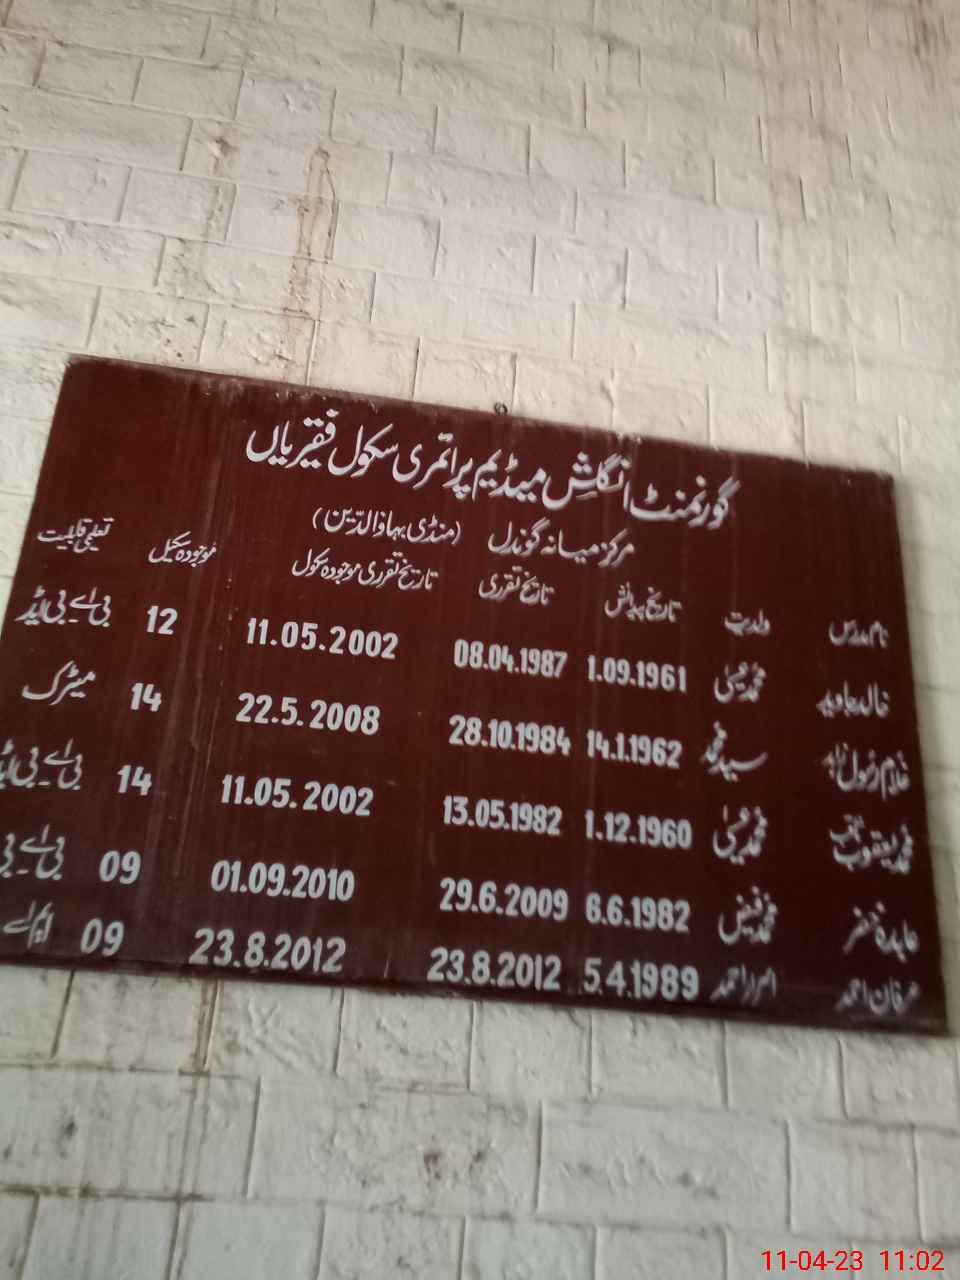 گورنمنٹ انگلش میڈیم پرائمری سکول فقیریاں
مرکز میانہ گوندل (منڈی بہاؤالدین)
نام مدرس ولدیت تاریخ پیدائش تاریخ تقرری تاریخ تقرری موجودہ سکول موجودہ سکیل تعلیمی قابلیت
خالد جاوید محمد عیسیٰ 1.09.1961 08.04.1987 11.05.2002 12 بی اے بی ایڈ
غلام رسول سید محمد 14.1.1962 28.10.1984 22.5.2008 14 میٹرک
محمد یعقوب محمد عیسیٰ 1.12.1960 13.05.1982 11.05.2002 14 بی اے بی ایڈ
عابدہ غضنفر محمد فیض 6.6.1982 29.6.2009 01.09.2010 09 بی اے بی
عرفان احمد اسرار احمد 5.4.1989 23.8.2012 23.8.2012 09 ایم اے
11-04-23 11:02